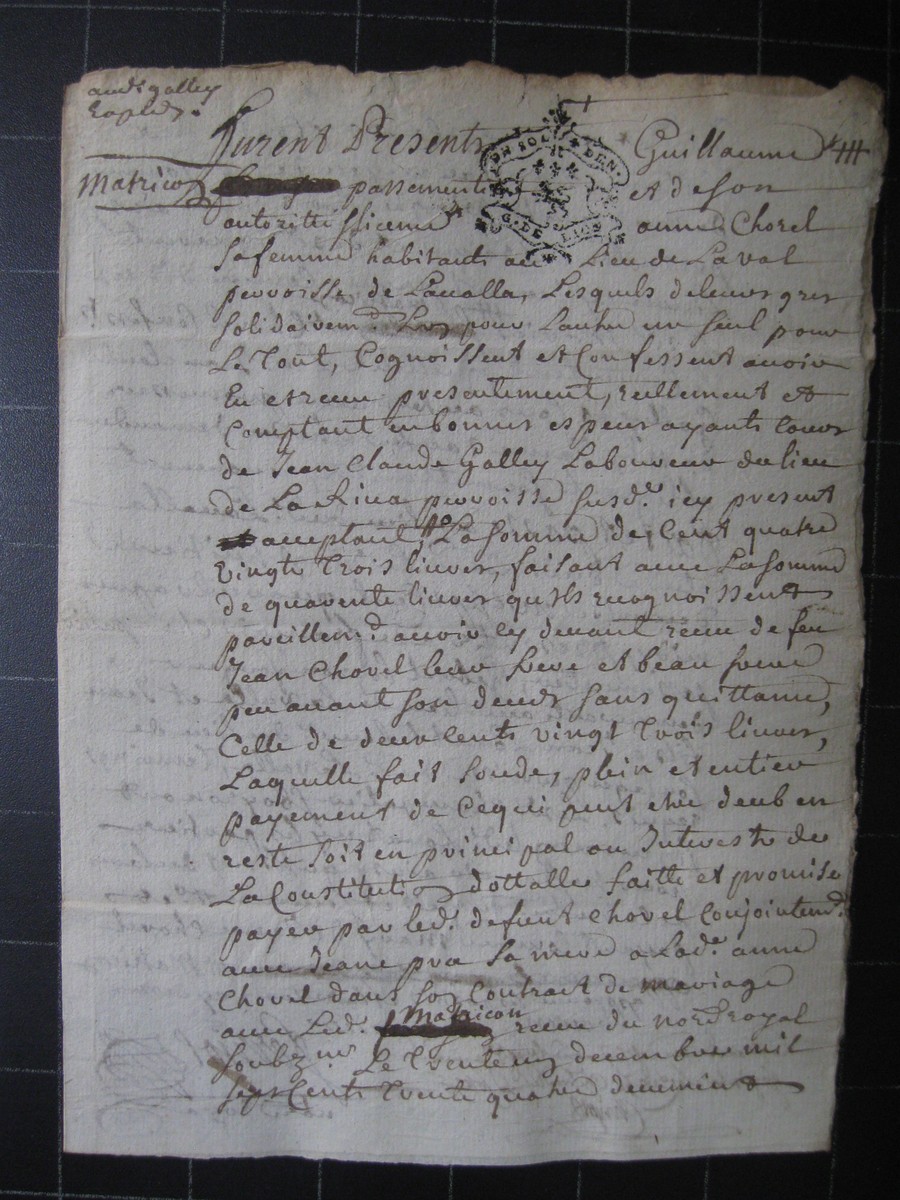 audt galley
Expled.
furent Presents Guillaume
Matricon passementier et de son
autoritte anne Chorel
sa femme habitants au Lieu de Laval
parroisse de Lavalla, Lesquels de leurs grés
solidairemt. L'un pour Lautre un seul pour
Le Tout, Cognoissent et Confessent avoir
Eu et receu presentement, reellement et
Comptant en bonnes especes ayants Cours
de Jean Claude Galley Laboureur du lieu
de La Riva parroisse susde. icy present
acceptant, La somme de Cent quatre
Vingts Trois livres, faisant avec La somme
de quarente livres qu'ils recognoissent
pareillemt. avoir cy devant receu de feu
Jean Chorel leur frere et beau frere
peu avant son deceds sans quittance,
Celle de deux Cents vingt Trois livres,
Laquelle fait Soude, plein et entier
payement de Ce qui peut etre deub en
reste soit en principal ou Interests de
La Constitution dottalle faitte et promise
payer par led. defunt Chorel Conjointemt.
avec Jeane sa mere a Lade. anne
Chorel dans son Contract de mariage
avec Led. Matricon receu du nore. royal
soubzné. Le Trente un decembre mil
sept Cents Trente quatre deuement